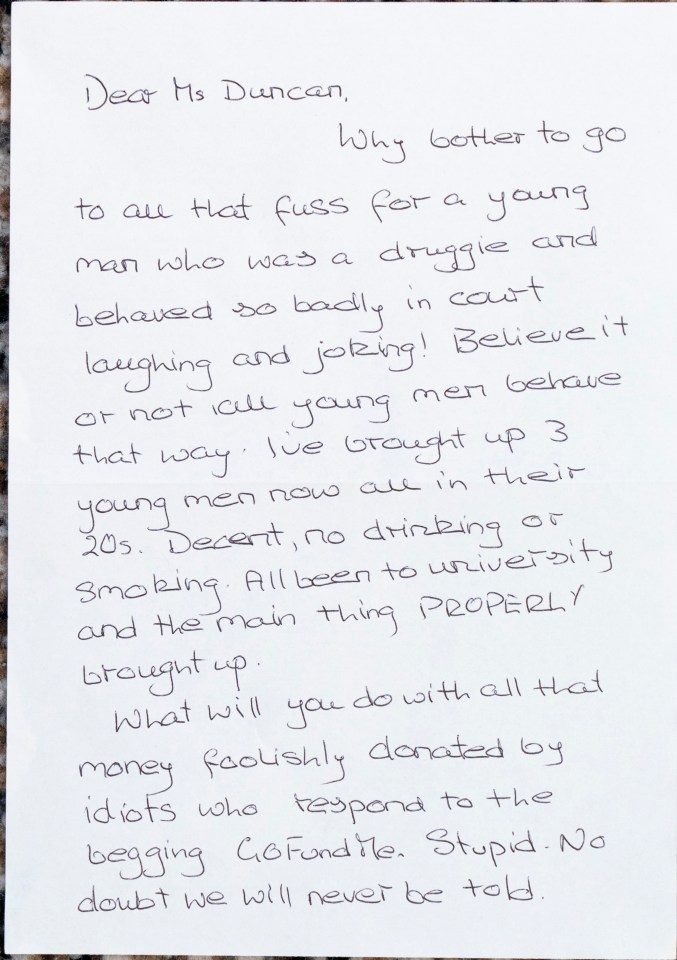 Dear Ms Duncan,
Why bother to go
to all that fuss for a young
man who was a druggie and
behaved so badly in court
laughing and joking! Believe it
or not all young men behave
that way. I've brought up 3
young men now all in their
20s. Decent, no drinking or
smoking. All been to university
and the main thing PROPERLY
brought up.
What will you do with all that
money foolishly donated by
idiots who respond to the
begging GoFundMe. Stupid. No
doubt we will never be told.